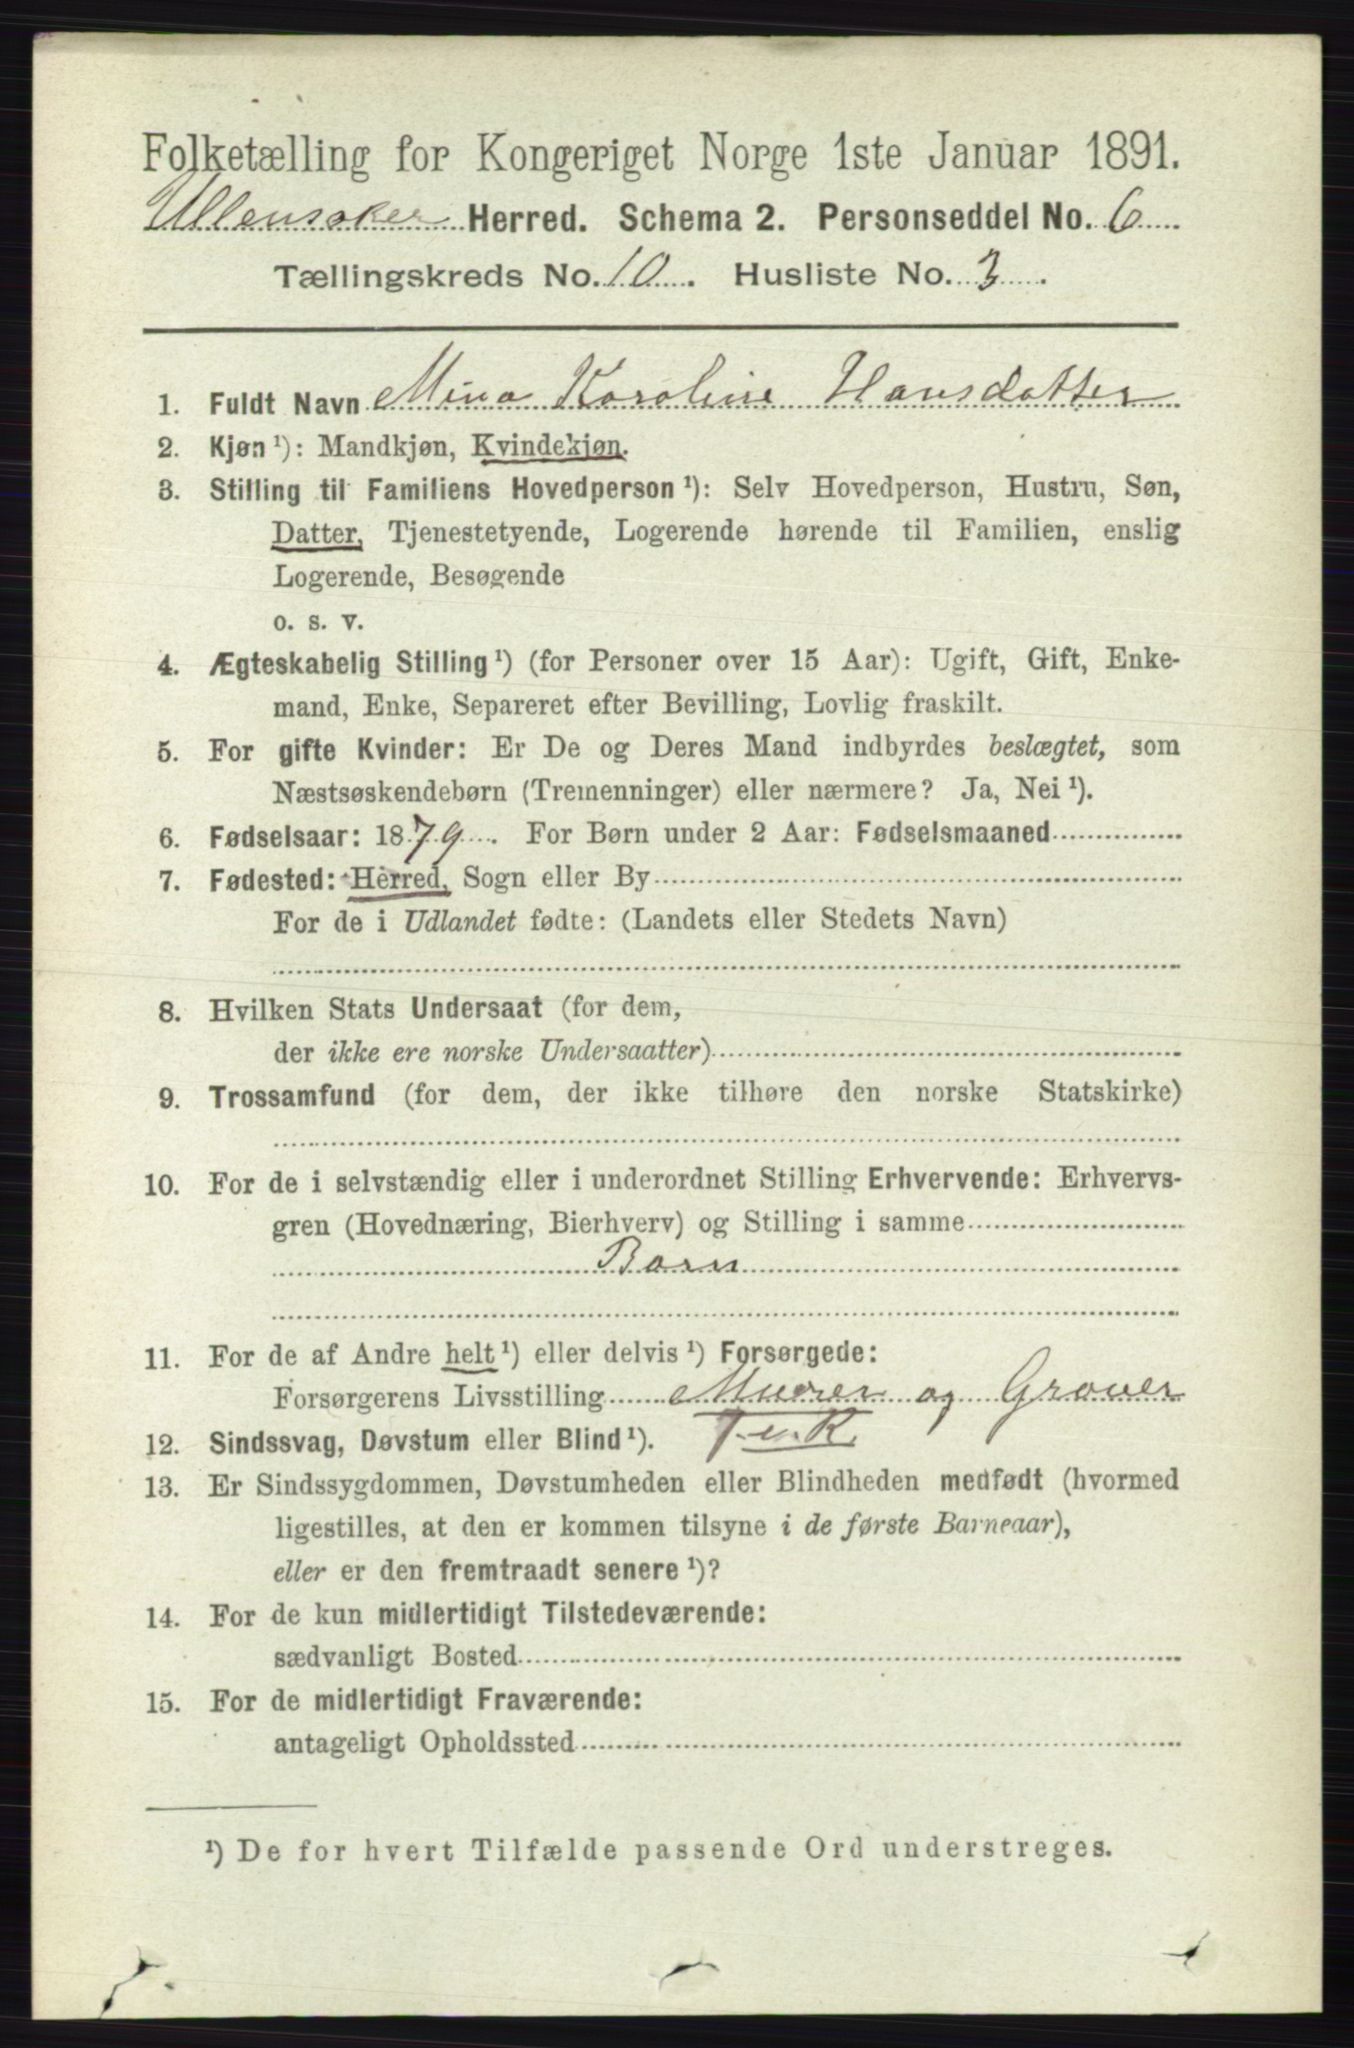 Folketælling for Kongeriget Norge 1ste Januar 1891.
Ullensaker Herred. Schema 2. Personseddel No. 6
Tællingskreds No. 10. Husliste No. 3.
1. Fuldt Navn Mina Karoline Hansdatter
2. Kjøn ¹): Mandkjøn, Kvindekjøn.
3. Stilling til Familiens Hovedperson ¹): Selv Hovedperson, Hustru, Søn,
Datter, Tjenestetyende, Logerende hørende til Familien, enslig
Logerende, Besøgende
o. s. v.
4. Ægteskabelig Stilling ¹) (for Personer over 15 Aar): Ugift, Gift, Enke-
mand, Enke, Separeret efter Bevilling, Lovlig fraskilt.
5. For gifte Kvinder: Er De og Deres Mand indbyrdes beslægtet, som
Næstsøskendebørn (Tremenninger) eller nærmere? Ja, Nei ¹).
6. Fødselsaar: 1879. For Børn under 2 Aar: Fødselsmaaned
7. Fødested: Herred, Sogn eller By
For de i Udlandet fødte: (Landets eller Stedets Navn)
8. Hvilken Stats Undersaat (for dem,
der ikke ere norske Undersaatter)
9. Trossamfund (for dem, der ikke tilhøre den norske Statskirke)
10. For de i selvstændig eller i underordnet Stilling Erhvervende: Erhvervs-
gren (Hovednæring, Bierhverv) og Stilling i samme
Barn
11. For de af Andre helt ¹) eller delvis ¹) Forsørgede:
Forsørgerens Livsstilling Murer og Graver
12. Sindssvag, Døvstum eller Blind ¹).
13. Er Sindssygdommen, Døvstumheden eller Blindheden medfødt (hvormed
ligestilles, at den er kommen tilsyne i de første Barneaar),
eller er den fremtraadt senere ¹)?
14. For de kun midlertidigt Tilstedeværende:
sædvanligt Bosted
15. For de midlertidigt Fraværende:
antageligt Opholdssted
¹) De for hvert Tilfælde passende Ord understreges.